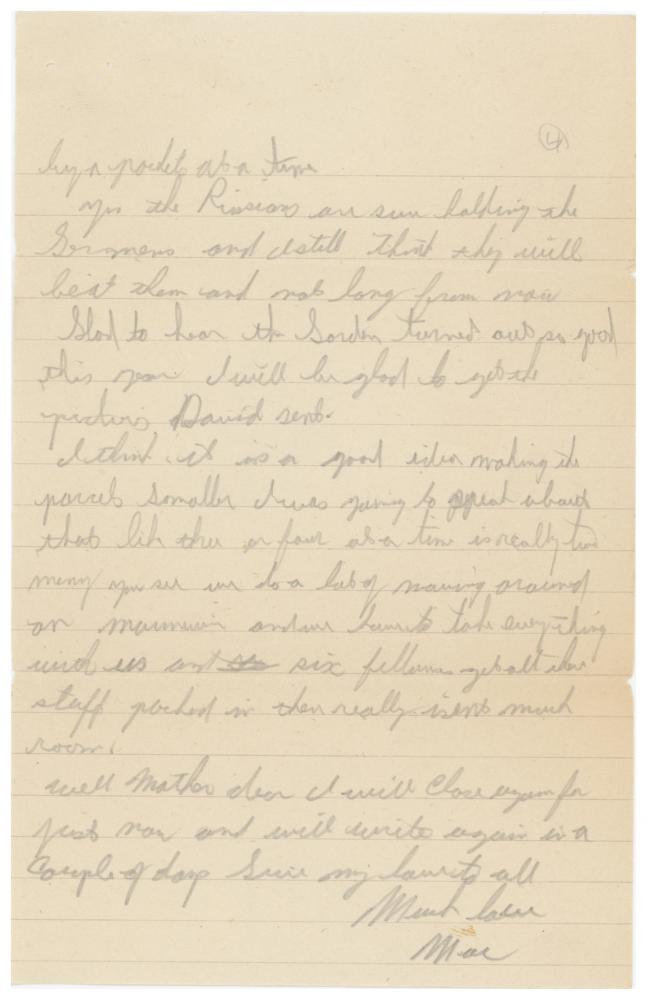 4
by a packet at a time
yes the Russians are sure holding the
Germens and I still think they will
beat them and not long from now
Glad to hear the Garden turned out so good
this year. I will be glad to get the
David sent.
I think it is a good idea making the
parcels smaller I was going to about
that like three or four at a time is really too
many you see we do a lot of moving around
on and we have to take everything
with us and six fellows get all their
stuff packed in there really isent much
room.
well Mother dear I will Close again for
just now and will write again in a
Couple of days Give my love to all
Much love
Mac